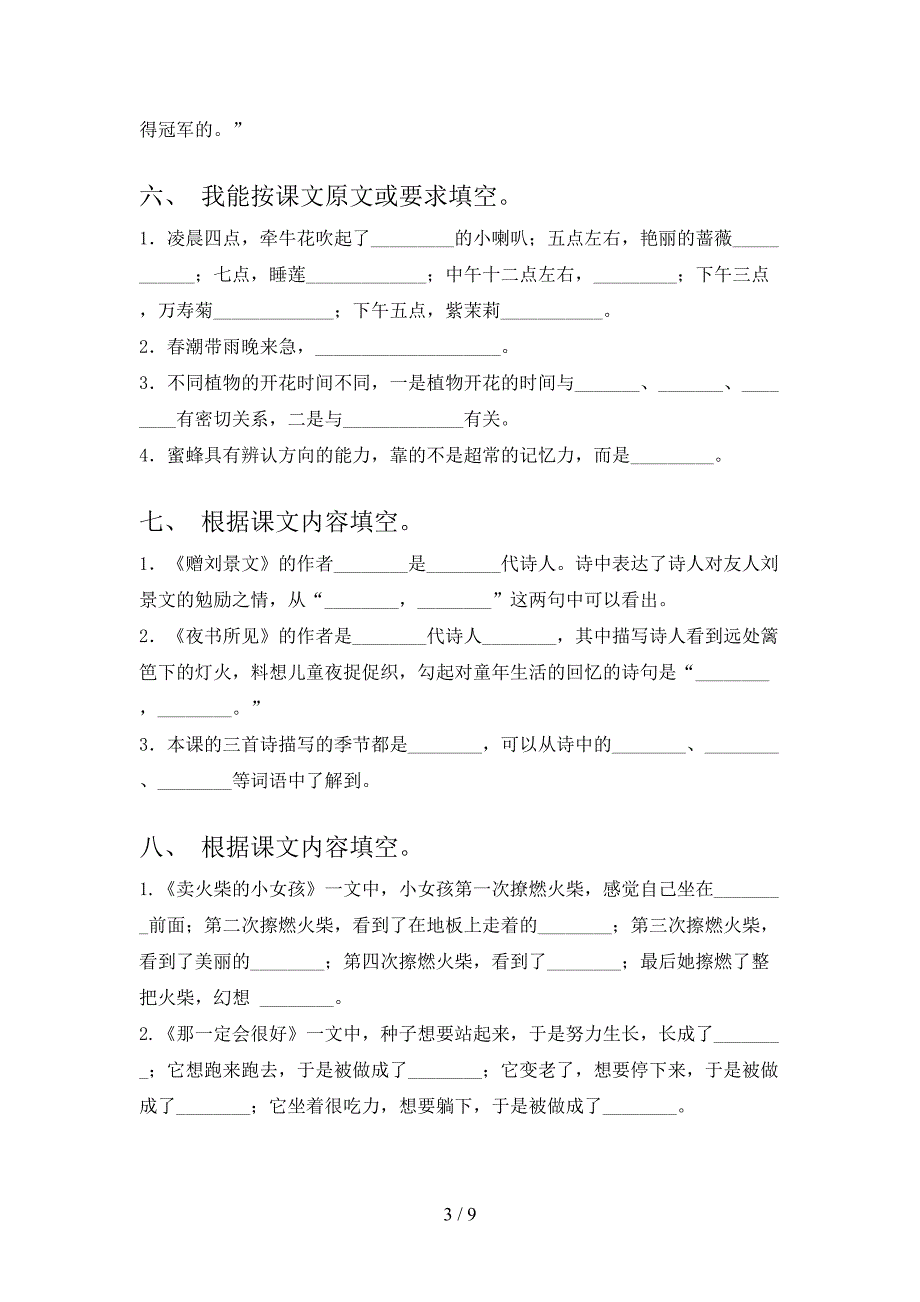 得冠军的。”
六、 我能按课文原文或要求填空。
1．凌晨四点，牵牛花吹起了_________的小喇叭；五点左右，艳丽的蔷薇_____
______；七点，睡莲_____________；中午十二点左右，_________；下午三点
，万寿菊_____________；下午五点，紫茉莉___________。
2．春潮带雨晚来急，____________________。
3．不同植物的开花时间不同，一是植物开花的时间与_______、_______、____
____有密切关系，二是与_____________有关。
4．蜜蜂具有辨认方向的能力，靠的不是超常的记忆力，而是_________。
七、 根据课文内容填空。
1．《赠刘景文》的作者________是________代诗人。诗中表达了诗人对友人刘
景文的勉励之情，从“________，________”这两句中可以看出。
2．《夜书所见》的作者是________代诗人________，其中描写诗人看到远处篱
笆下的灯火，料想儿童夜捉促织，勾起对童年生活的回忆的诗句是“________
，________。”
3．本课的三首诗描写的季节都是________，可以从诗中的________、________
、________等词语中了解到。
八、 根据课文内容填空。
1.《卖火柴的小女孩》一文中，小女孩第一次撩燃火柴，感觉自己坐在_______
_前面；第二次擦燃火柴，看到了在地板上走着的________；第三次擦燃火柴，
看到了美丽的________；第四次擦燃火柴，看到了________；最后她擦燃了整
把火柴，幻想 ________。
2.《那一定会很好》一文中，种子想要站起来，于是努力生长，长成了_______
_；它想跑来跑去，于是被做成了________；它变老了，想要停下来，于是被做
成了________；它坐着很吃力，想要躺下，于是被做成了________。
3 / 9